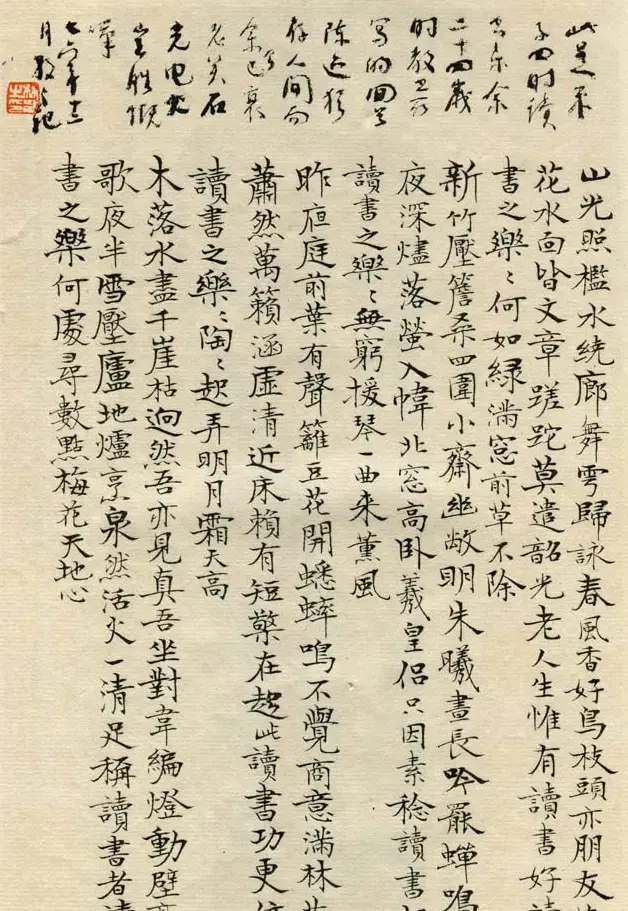 此是
子四时读
书乐余
二十四歲
时教
写的回
陈迹犹
存人间而
余已衰
老矣石
光电火
岂胜慨
七六年十二
月
山光照檻水绕廊舞雩歸詠春風香好鳥枝頭亦朋友
花水面皆文章蹉跎莫遣韶光老人生惟有讀書好
書之樂〻何如緑滿窓前草不除
新竹壓簷桑四圍小齋幽敞明朱曦晝長吟罷蟬鳴
夜深燼落螢入幃北窓高卧羲皇侣只因素稔讀書
讀書之樂〻無窮援琴一曲来薰風
昨夜庭前葉有聲籬豆花開蟋蟀鳴不覺商意滿林
蕭然萬籟涵虚清近床賴有短檠在趁此讀書功更
讀書之樂〻陶〻起弄明月霜天高
木落水盡千崖枯迥然吾亦見真吾坐對韋編燈動壁
歌夜半雪壓廬地爐烹泉然活火一清足稱讀書者
書之樂何處尋數點梅花天地心